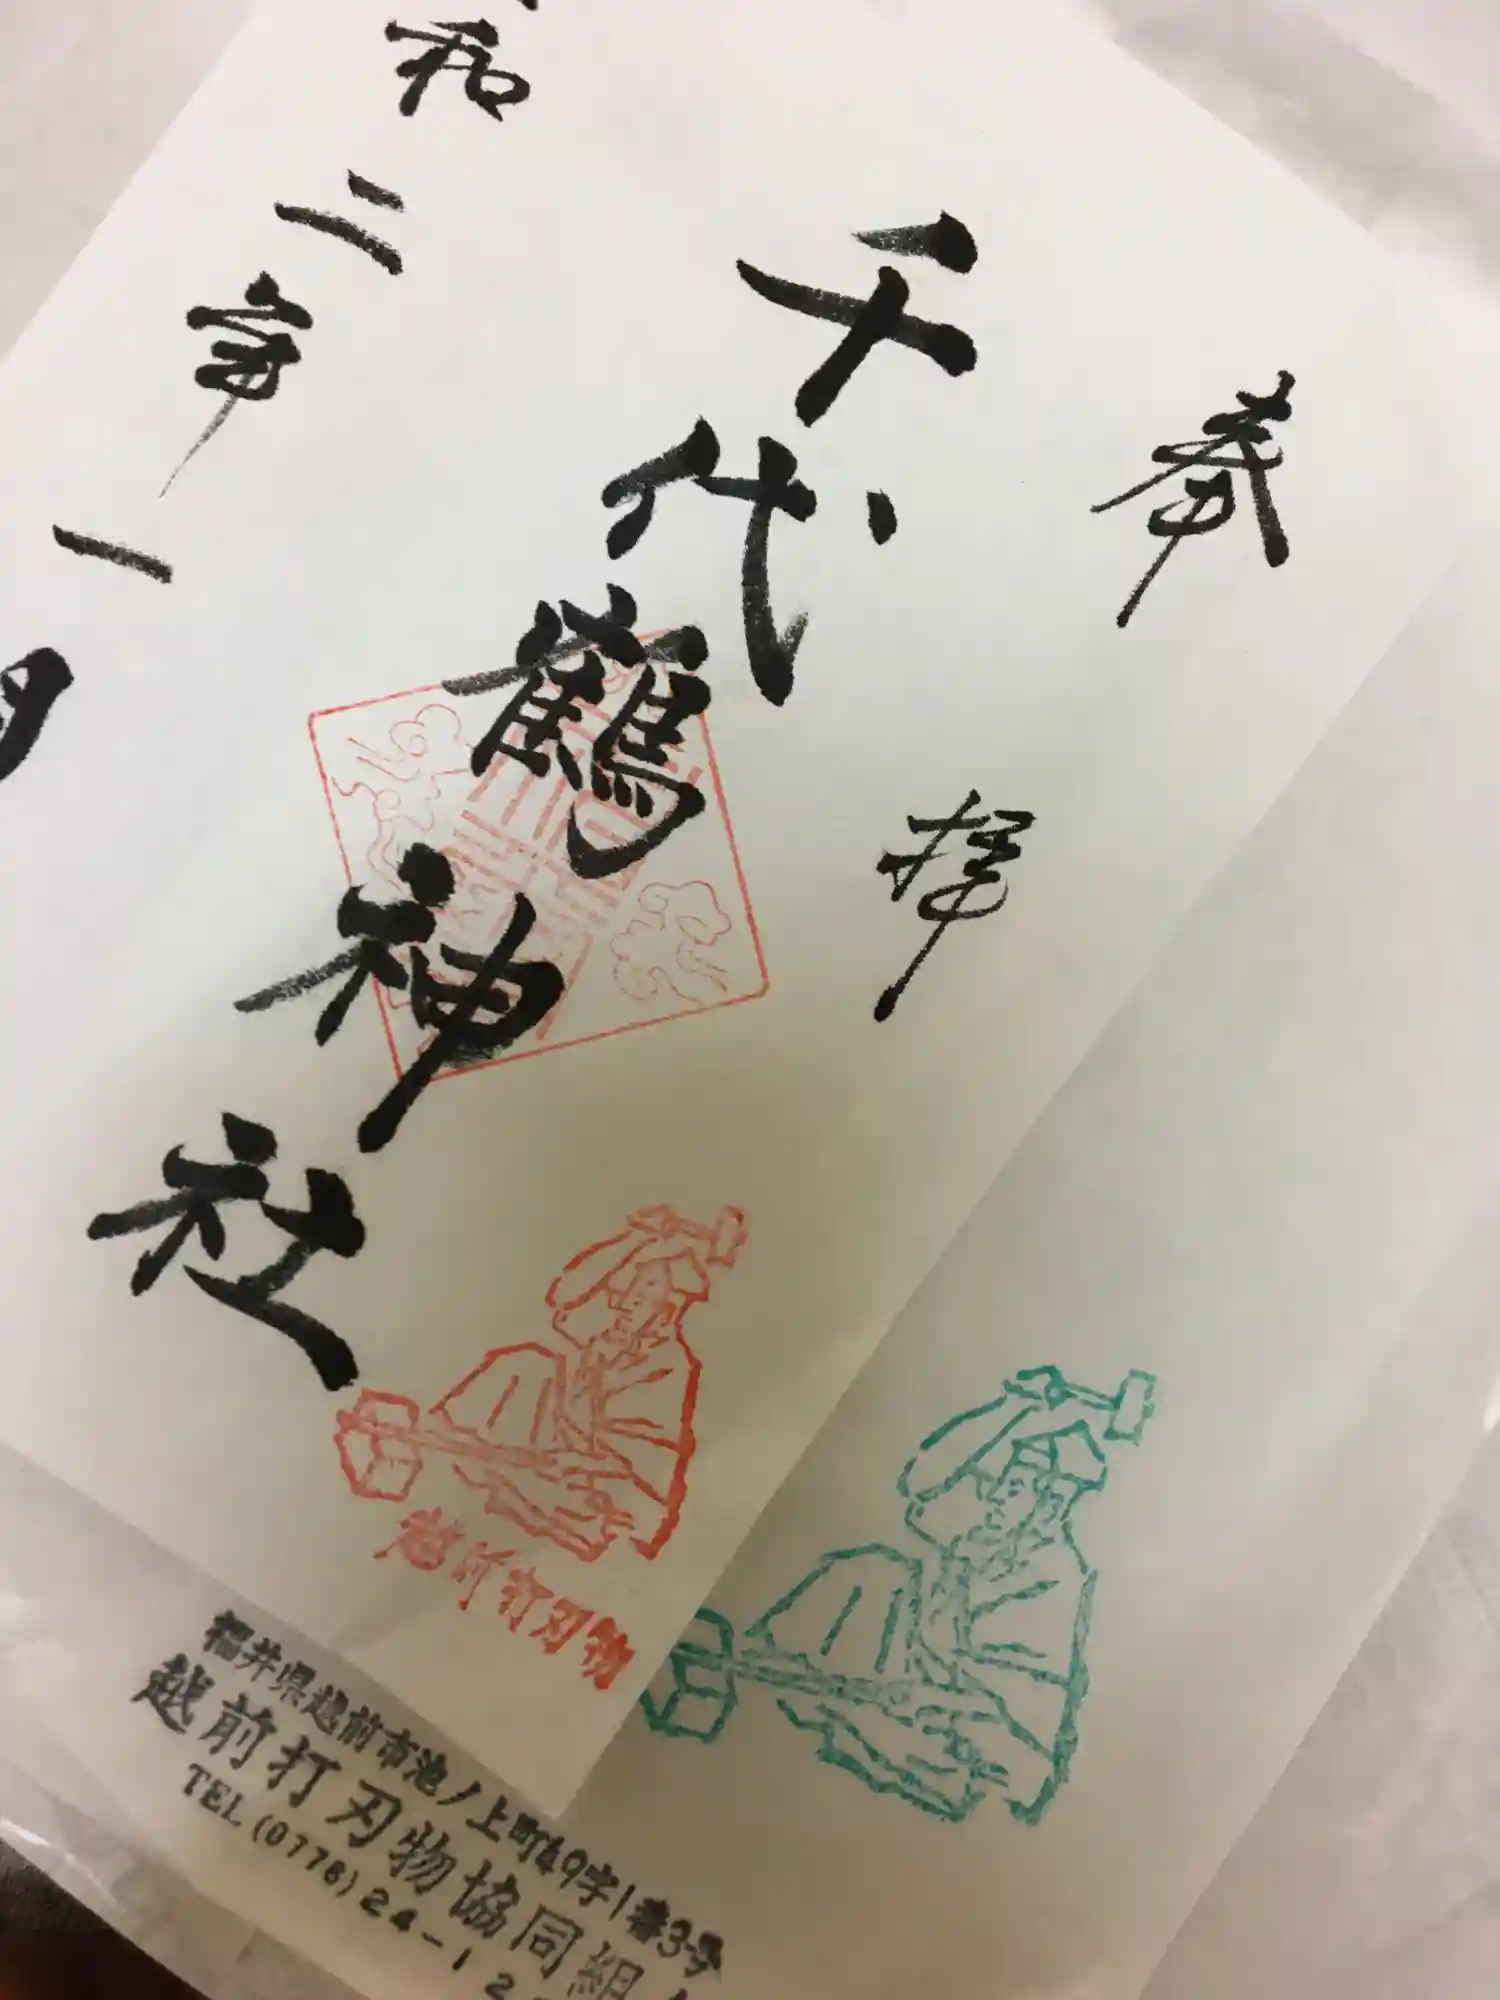 奉拝
千代鶴神社
和二年一月
越前打刃物
福井県越前市池ノ上町49字1番3号
越前打刃物協同組
TEL(0778)24-12